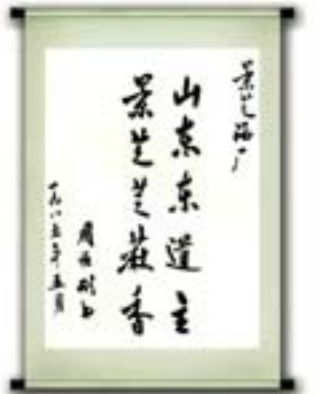 景芝酒厂
山东东道主
景芝芝蔴香
周恒刚书
一九八五年五月